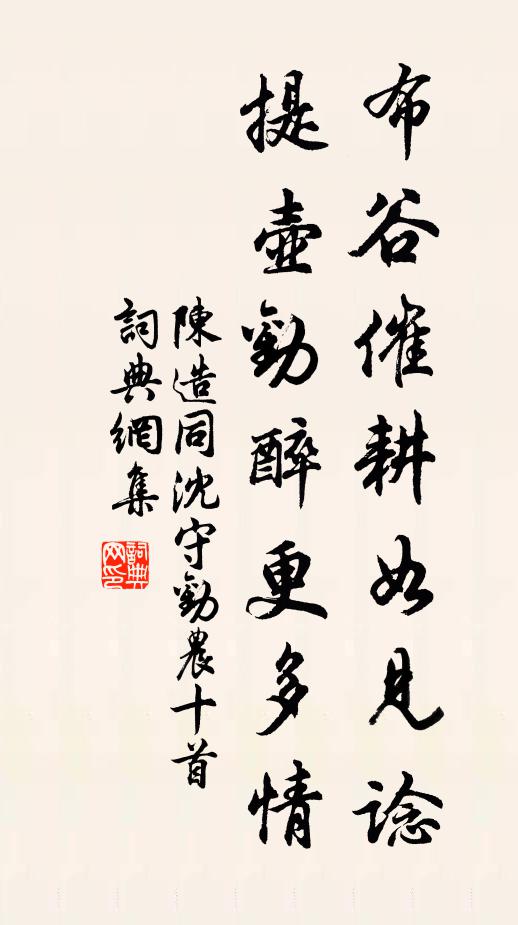 布谷催耕如見諗
提壺勸醉更多情
陳造同沈守勸農十首
詞典網集
詞典网印